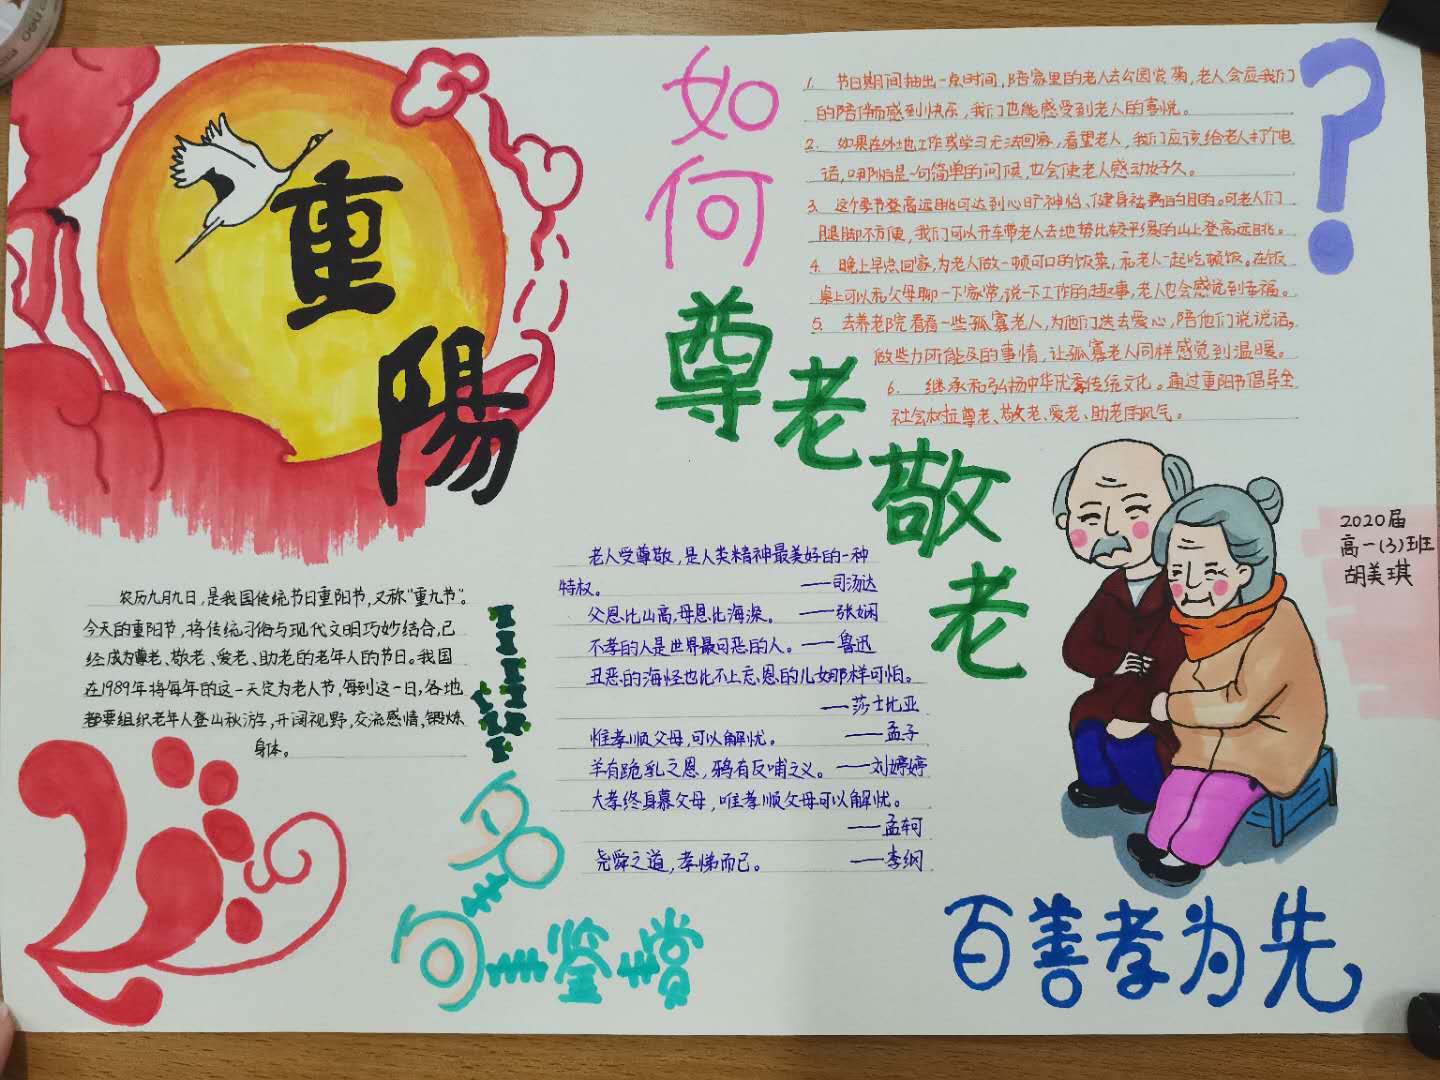 重
陽
农历九月九日，是我国传统节日重阳节，又称“重九节”。
今天的重阳节，将传统习俗与现代文明巧妙结合，已
经成为尊老、敬老、爱老、助老的老年人的节日。我国
在1989年将每年的这一天定为老人节，每到这一日，各地
都要组织老年人登山秋游，开阔视野，交流感情，锻炼
身体。
如何
尊老敬老
？
1. 节日期间抽出一点时间，陪家里的老人去公园赏菊，老人会应我们
的陪伴而感到快乐，我们也能感受到老人的喜悦。
2. 如果在外地工作或学习无法回家，看望老人，我们应该给老人打个电
话，哪怕是一句简单的问候，也会使老人感动好久。
3. 这个季节登高远眺可达到心旷神怡、健身祛病的目的。可老人们
腿脚不方便，我们可以开车带老人去地势比较平缓的山上登高远眺。
4. 晚上早点回家，为老人做一顿可口的饭菜，和老人一起吃顿饭。在饭
桌上可以和父母聊一下家常，说一下工作的趣事，老人也会感觉到幸福。
5. 去养老院看看一些孤寡老人，为他们送去爱心，陪他们说说话，
做些力所能及的事情，让孤寡老人同样感觉到温暖。
6. 继承和弘扬中华优秀传统文化。通过重阳节倡导全
社会树立尊老、敬老、爱老、助老的风气。
老人受尊敬，是人类精神最美好的一种
特权。——司汤达
父恩比山高，母恩比海深。——张娴
不孝的人是世界最可恶的人。——鲁迅
丑恶的海怪也比不上忘恩的儿女那样可怕。
——莎士比亚
惟孝顺父母，可以解忧。——孟子
羊有跪乳之恩，鸦有反哺之义。——刘婷婷
大孝终身慕父母，唯孝顺父母可以解忧。
——孟轲
尧舜之道，孝悌而已。——李纲
名句鉴赏
百善孝为先
2020届
高一(3)班
胡美琪